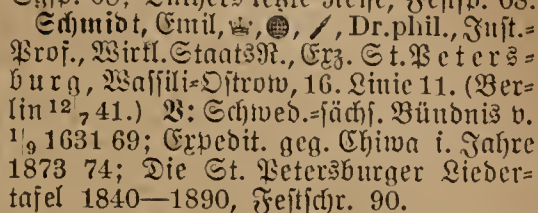 Schmidt, Emil, Dr. phil., Just.=
Prof., Wirkl. StaatsR., Exz. St. Peters=
burg, Wassili=Ostrow, 16. Linie 11. (Ber=
lin 12/7 41.) V: Schwed.=sächs. Bündnis v.
1/9 1631 69; Expedit. geg. Chiwa i. Jahre
1873 74; Die St. Petersburger Lieder=
tafel 1840—1890, Festschr. 90.